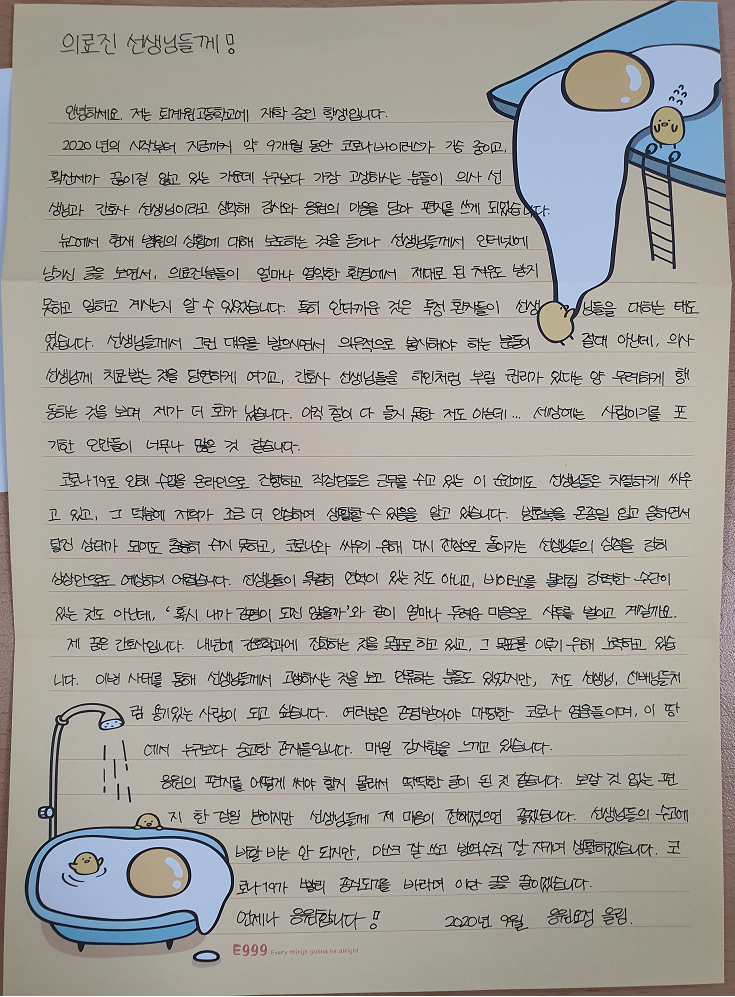 의료진 선생님들께!
안녕하세요. 저는 퇴계원고등학교에 재학 중인 학생입니다.
2020년의 시작부터 지금까지 약 9개월 동안 코로나바이러스가 기승 중이고,
확산세가 끊이질 않고 있는 가운데 누구보다 가장 고생하시는 분들이 의사 선
생님과 간호사 선생님이라고 생각해 감사와 응원의 마음을 담아 편지를 쓰게 되었습니다.
뉴스에서 현재 병원의 상황에 대해 보도하는 것을 듣거나 선생님들께서 인터넷에
남기신 글을 보면서, 의료진분들이 얼마나 열악한 환경에서 제대로 된 처우도 받지
못하고 일하고 계시는지 알 수 있었습니다. 특히 안타까운 것은 특정 환자들이 선생님들을 대하는 태도
였습니다. 선생님들께서 그런 대우를 받으시면서 의무적으로 봉사해야 하는 분들이 절대 아닌데, 의사
선생님께 치료받는 것을 당연하게 여기고, 간호사 선생님들을 하인처럼 부릴 권리가 있다는 양 무례하게 행
동하는 것을 보며 제가 더 화가 났습니다. 아직 철이 다 들지 못한 저도 아는데... 세상에는 사람이기를 포
기한 인간들이 너무나 많은 것 같습니다.
코로나19로 인해 수업을 온라인으로 진행하고 직장인들은 근무를 쉬고 있는 이 순간에도 선생님들은 치열하게 싸우
고 있고, 그 덕분에 저희가 조금 더 안심하며 생활할 수 있음을 알고 있습니다. 방호복을 온종일 입고 일하면서
탈진 상태가 되어도 충분히 쉬지 못하고, 코로나와 싸우기 위해 다시 전장으로 돌아가는 선생님들의 심정을 감히
상상만으로도 예상하기 어렵습니다. 선생님들이 특별히 면역이 있는 것도 아니고, 바이러스를 물리칠 강력한 수단이
있는 것도 아닌데, '혹시 내가 감염이 되진 않을까'와 같이 얼마나 두려운 마음으로 사투를 벌이고 계실까요.
제 꿈은 간호사입니다. 내년에 간호학과에 진학하는 것을 목표로 하고 있고, 그 목표를 이루기 위해 노력하고 있습
니다. 이번 사태를 통해 선생님들께서 고생하시는 것을 보고 만류하는 분들도 있었지만, 저도 선생님, 선배님들처
럼 용기있는 사람이 되고 싶습니다. 여러분은 존경받아야 마땅한 코로나 영웅들이며, 이 땅
에서 누구보다 숭고한 존재들입니다. 매일 감사함을 느끼고 있습니다.
응원의 편지를 어떻게 써야 할지 몰라서 딱딱한 글이 된 것 같습니다. 보잘 것 없는 편
지 한 장일 뿐이지만 선생님들께 제 마음이 전해졌으면 좋겠습니다. 선생님들의 수고에
비할 바는 안 되지만, 마스크 잘 쓰고 방역수칙 잘 지키며 생활하겠습니다. 코
로나19가 빨리 종식되기를 바라며 이만 글을 줄이겠습니다.
언제나 응원합니다! 2020년 9월 응원요정 올림.
E999 Every things gonna be alright